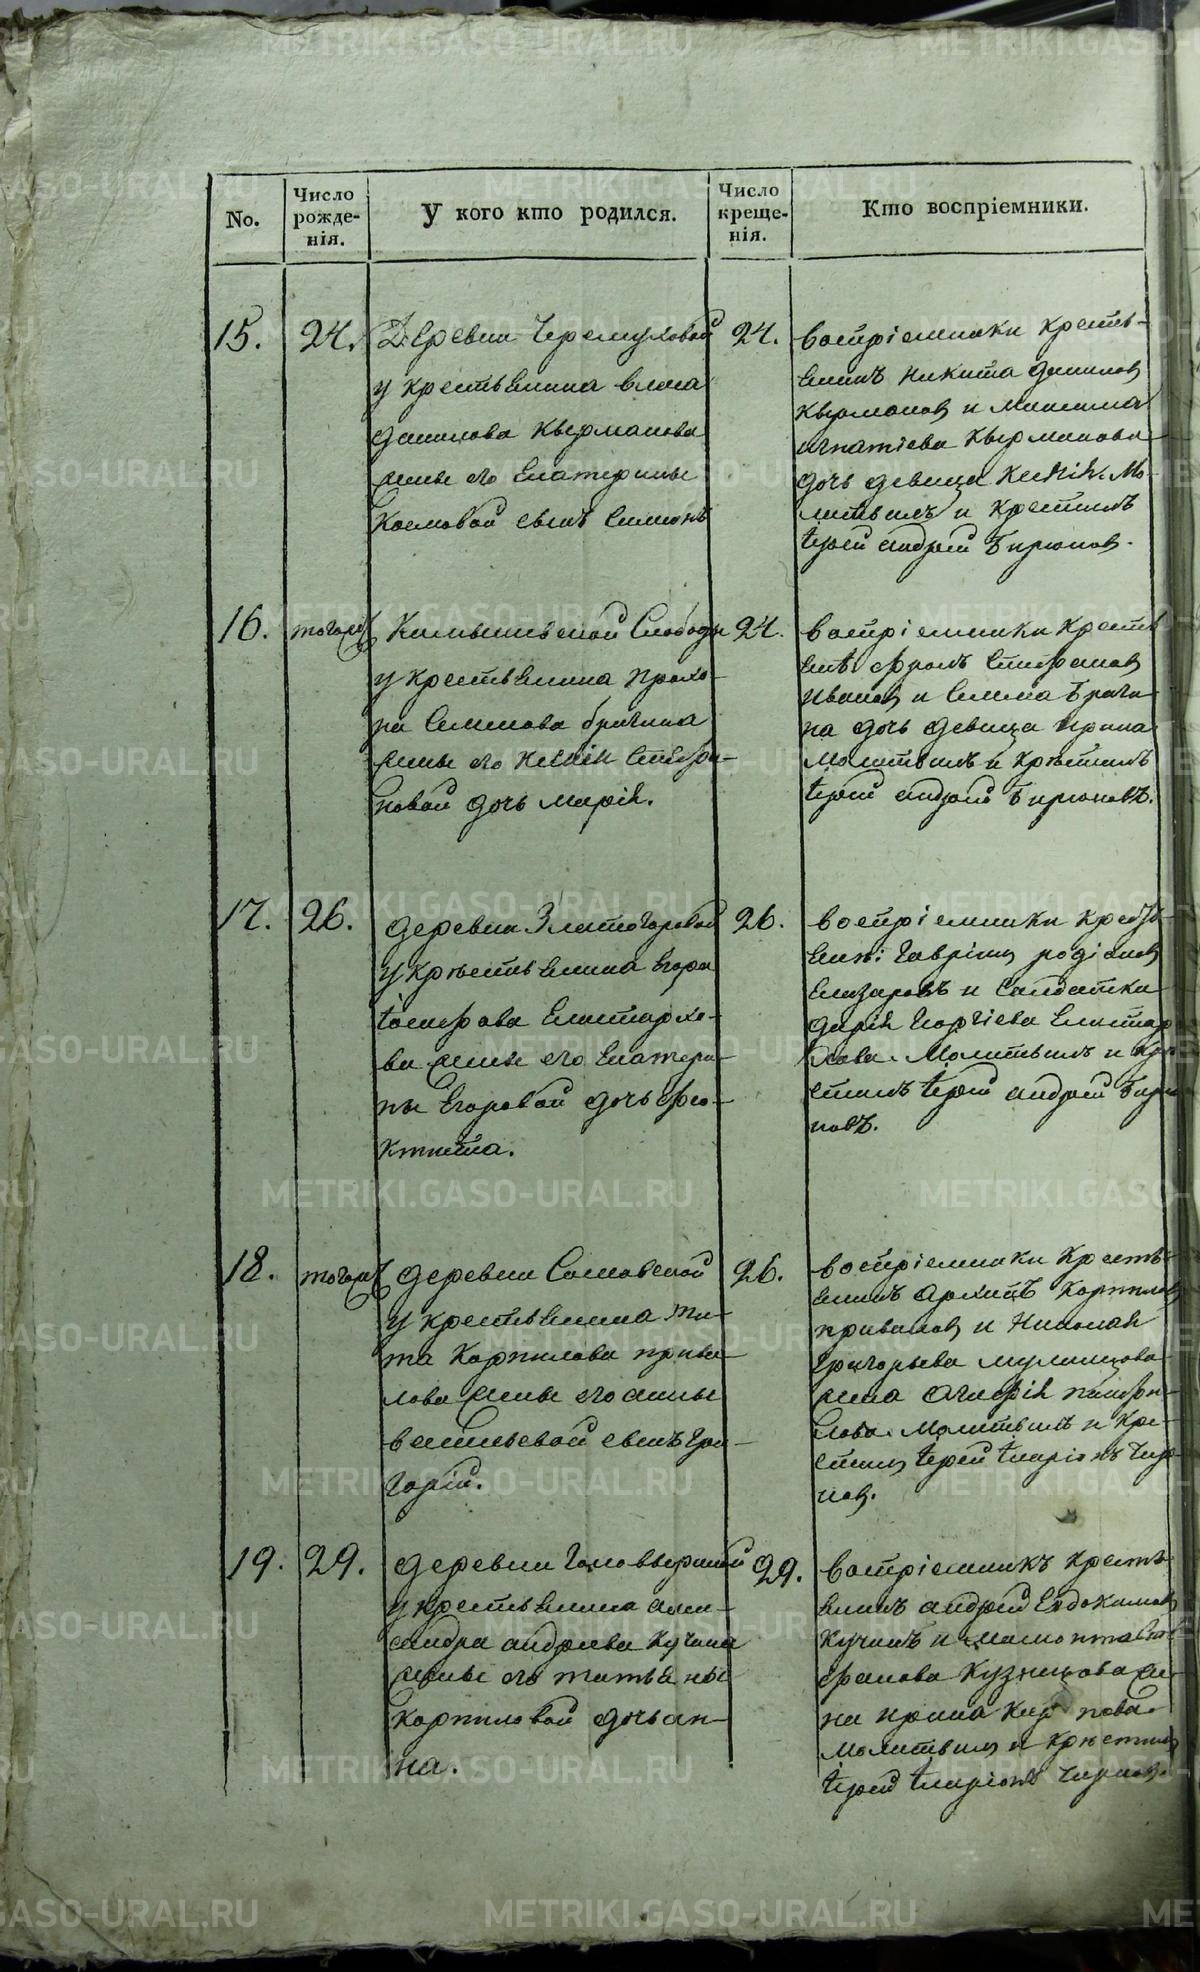 METRIKI.GASO-URAL.RU
No.
Число рожденія.
У кого кто родился.
Число крещенія.
Кто воспріемники.
15.
24.
Деревни Черемуховой
у крестьянина
данилова
жены его Екатерины
Космовой сынъ Симеонъ
24.
воспріемники кресть-
янинъ Никита данилов
и
игнатіева
дочь девица Мо-
литвилъ и крестилъ
іерей андрей Бирюков.
16.
тогож
Камышевской Слободы
у крестьянина Прохо-
ра Семенова брагина
жены его Стефа-
новой дочь Марія.
24.
воспріемники кресть
Стефанов
Иванов и Семена Браги-
на дочь девица Ирина
Молитвилъ и крестилъ
іерей андрей Бирюковъ.
17.
26.
деревни Златогоровой
у крестьянина Егора
іосифова Елистархо-
ва жены его Екатери-
ны Егоровой дочь Фео-
ктиста.
26.
воспріемники кресть-
гаврiил родіонов
Елизаровъ и Салдатка
дарія Георгіева Елистар
хова. Молитвилъ и кре
стилъ іерей андрей Бирю
ковъ.
18.
тогож
деревни Сосновской
у крестьянина Ти-
та Карпилова прива-
лова жены его анны
васильевой сынъ Гри-
горій.
26.
воспріемники кресть-
янинъ Архипъ Карпилов
привалов и Николая
григорьева
жена Агафія панфи-
лова. Молитвилъ и кре-
стил іерей іларіонъ Чир-
ков.
19.
29.
деревни
у крестьянина алек-
сандра андреева Кучина
жены его татьяны
Карпиловой дочь ан-
на.
29.
воспріемникъ кресть-
янинъ андрей Евдокимов
Кучинъ и мамонта Сте-
фанова Кузнецова же-
на Ирина
Молитвил и крестил
іерей іларіонъ Чирков.